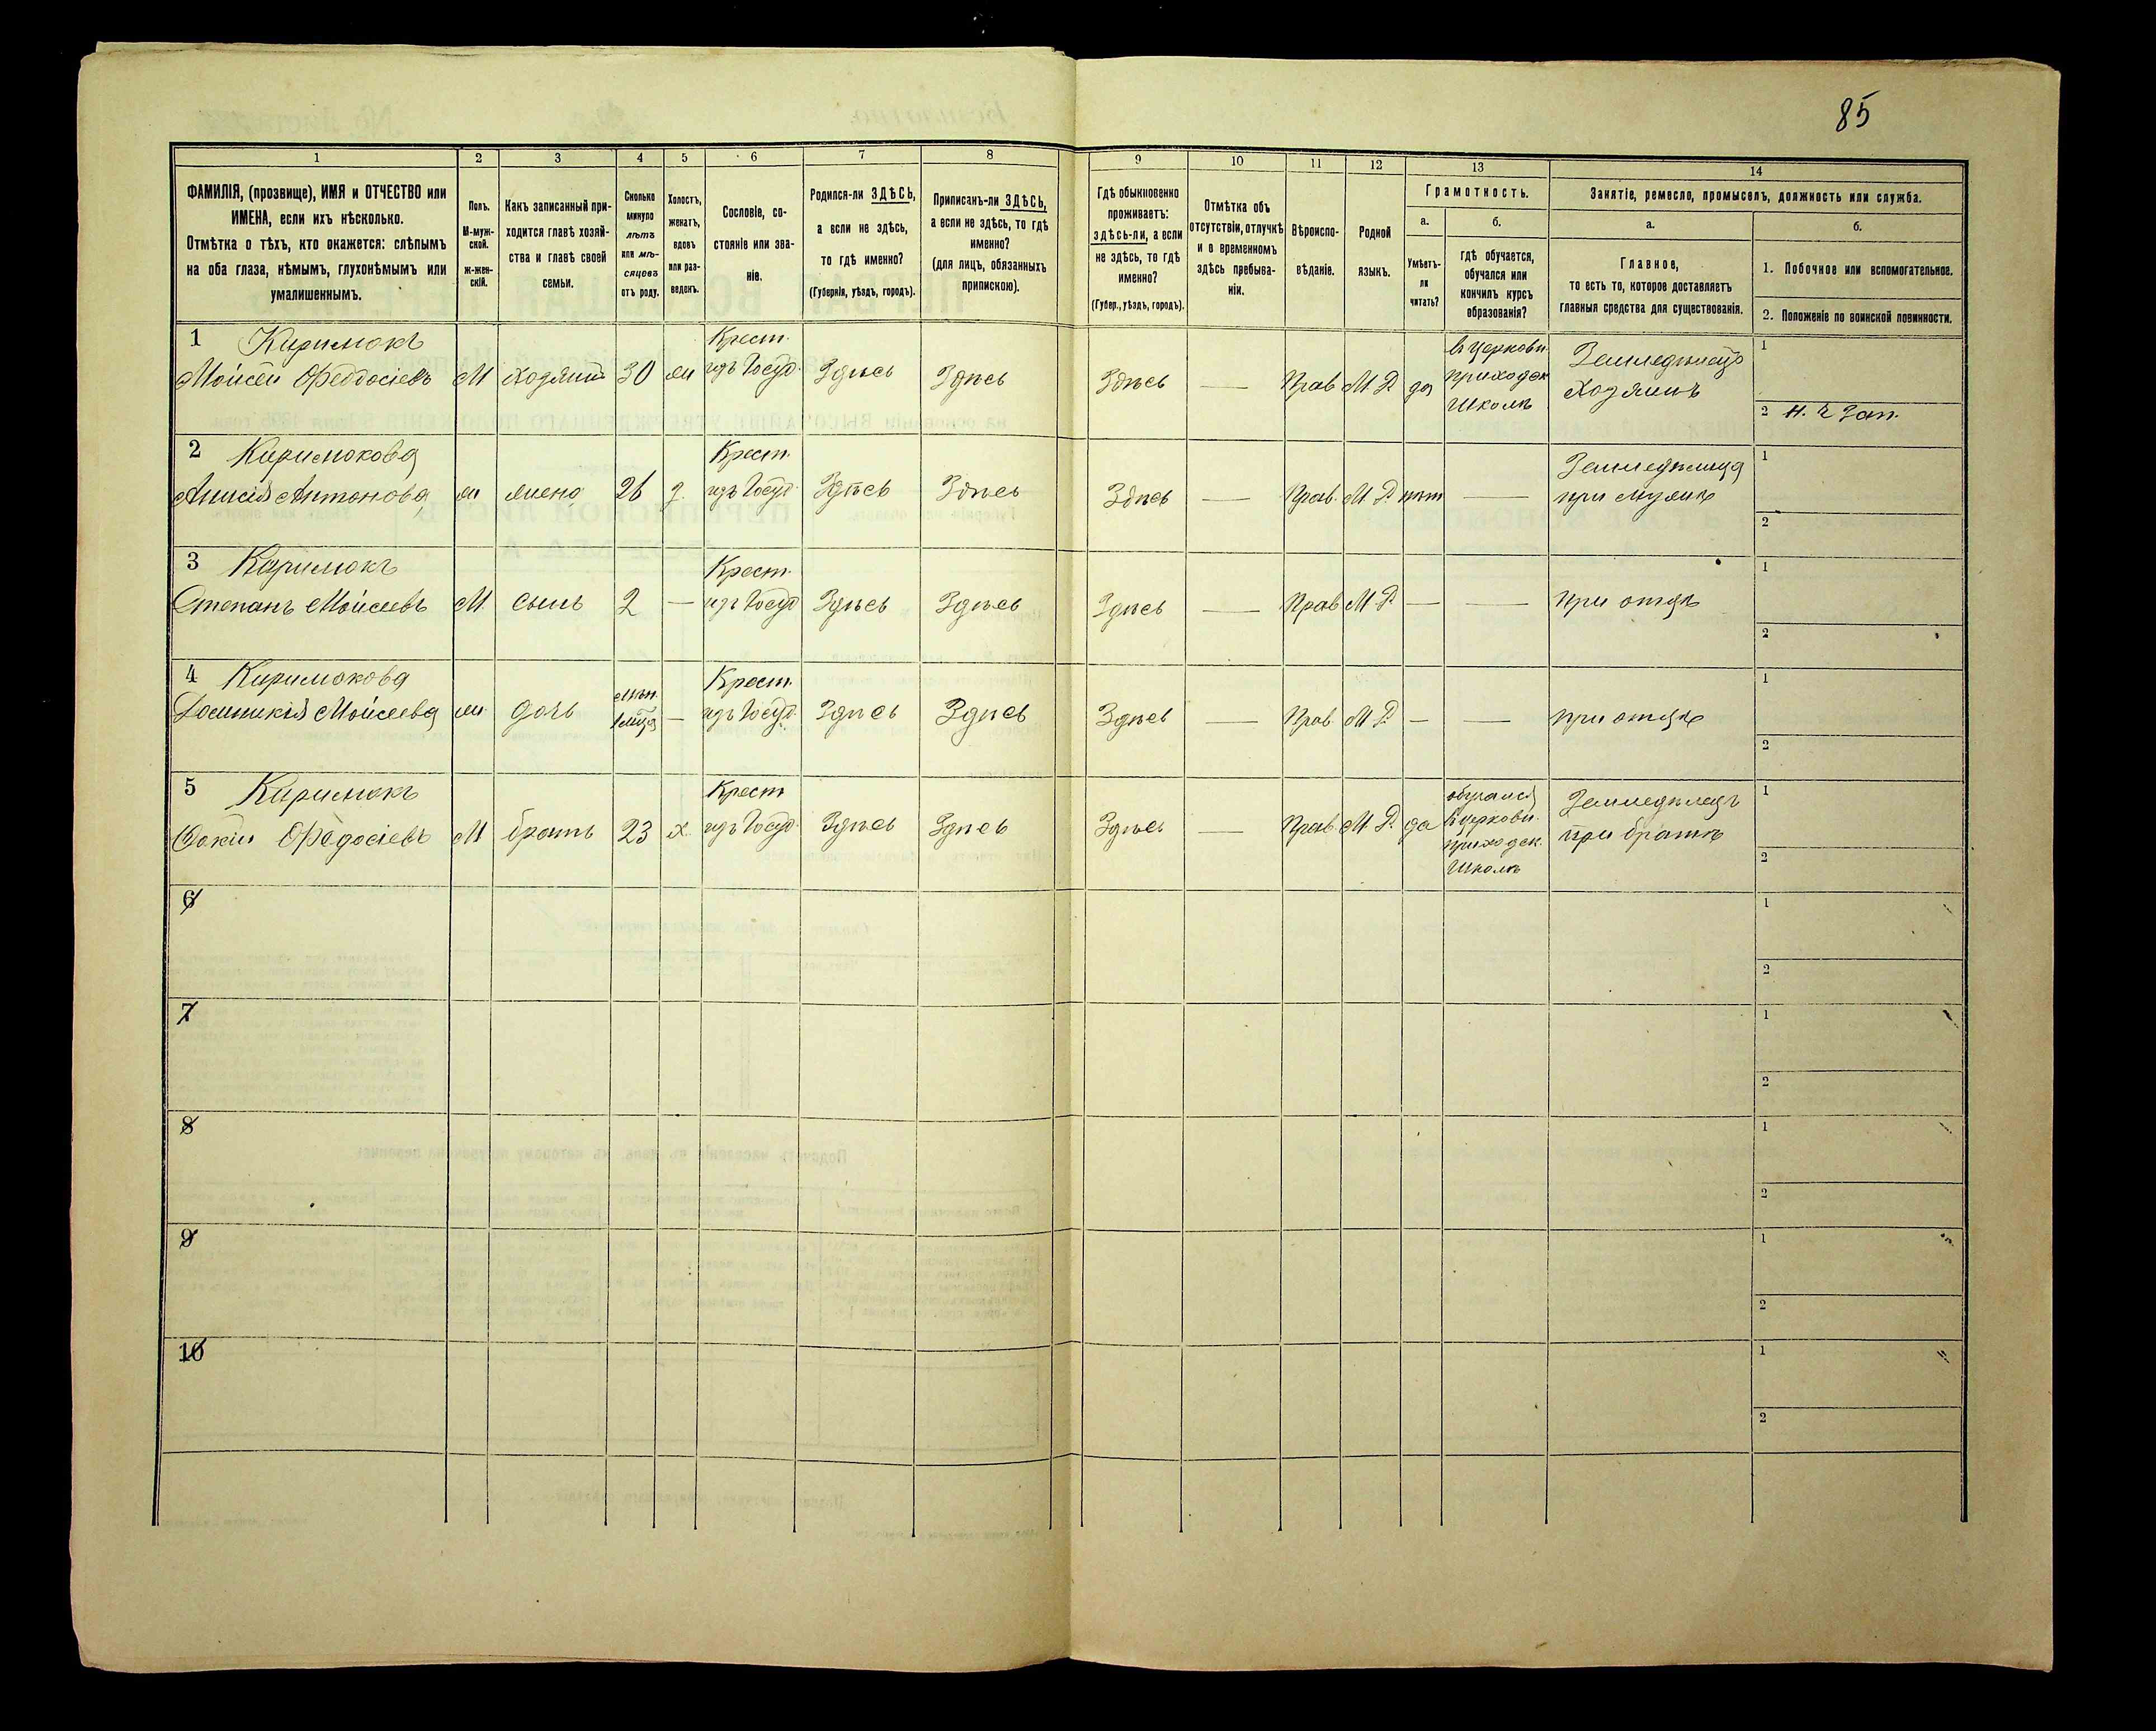 85
1
2
3
4
5
6
7
8
9
10
11
12
13
14
ФАМИЛІЯ, (прозвище), ИМЯ и ОТЧЕСТВО или
ИМЕНА, если ихъ нѣсколько.
Отмѣтка о тѣхъ, кто окажется: слѣпымъ
на оба глаза, нѣмымъ, глухонѣмымъ или
умалишеннымъ.
Полъ.
М-муж-
ской.
ж-жен-
скій.
Какъ записанный при-
ходится главѣ хозяй-
ства и главѣ своей
семьи.
Сколько
минуло
лѣтъ
или мѣ-
сяцовъ
отъ роду.
Холостъ,
женатъ,
вдовъ
или раз-
веденъ.
Сословіе, со-
стояніе или зва-
ніе.
Родился-ли ЗДѢСЬ,
а если не здѣсь,
то гдѣ именно?
(Губернія, уѣздъ, городъ).
Приписанъ-ли ЗДѢСЬ,
а если не здѣсь, то гдѣ
именно?
(для лицъ, обязанныхъ
припискою).
Гдѣ обыкновенно
проживаетъ:
здѣсь-ли, а если
не здѣсь, то гдѣ
именно?
(Губер., уѣздъ, городъ).
Отмѣтка объ
отсутствіи, отлучкѣ
и о временномъ
здѣсь пребыва-
ніи.
Вѣроиспо-
вѣданіе.
Родной
языкъ.
Грамотность.
а.
Умѣетъ-
ли
читать?
б.
гдѣ обучается,
обучался или
кончилъ курсъ
образованія?
Занятіе, ремесло, промыселъ, должность или служба.
а.
Главное,
то есть то, которое доставляетъ
главныя средства для существованія.
б.
1. Побочное или вспомогательное.
2. Положеніе по воинской повинности.
1 Киримокъ Крест. въ Церковн. 1
Мойсей Феодосіевъ М хозяинъ 30 ж изъ Госуд. Здѣсь Здѣсь Здѣсь — Прав М. Р. да приходск Земледѣлецъ
Школѣ Хозяинъ
2 Н. Ч Зап.
2 Киримокова Крест. Земледѣлица 1
Антонова ж жена 26 з. изъ Госуд. Здѣсь Здѣсь Здѣсь — Прав. М. Р. нѣт — при мужѣ
2
3 Киримокъ Крест. 1
Степанъ Мойсеевъ М сынъ 2 — изъ Госуд Здѣсь Здѣсь Здѣсь — Прав М. Р. — — при отцѣ
2
4 Киримокова Крест. 1
Домникія Мойсеева ж дочь — изъ Госуд. Здѣсь Здѣсь Здѣсь — Прав. М. Р. — — при отцѣ
2
5 Киримокъ Крест обучался Земледѣлецъ 1
Фадосіевъ М братъ 23 х. изъ Госуд. Здѣсь Здѣсь Здѣсь — Прав. М. Р. да въ церковн. при братѣ
приходск.
Школѣ 2
6 1
2
7 1
2
8 1
2
9 1
2
10 1
2